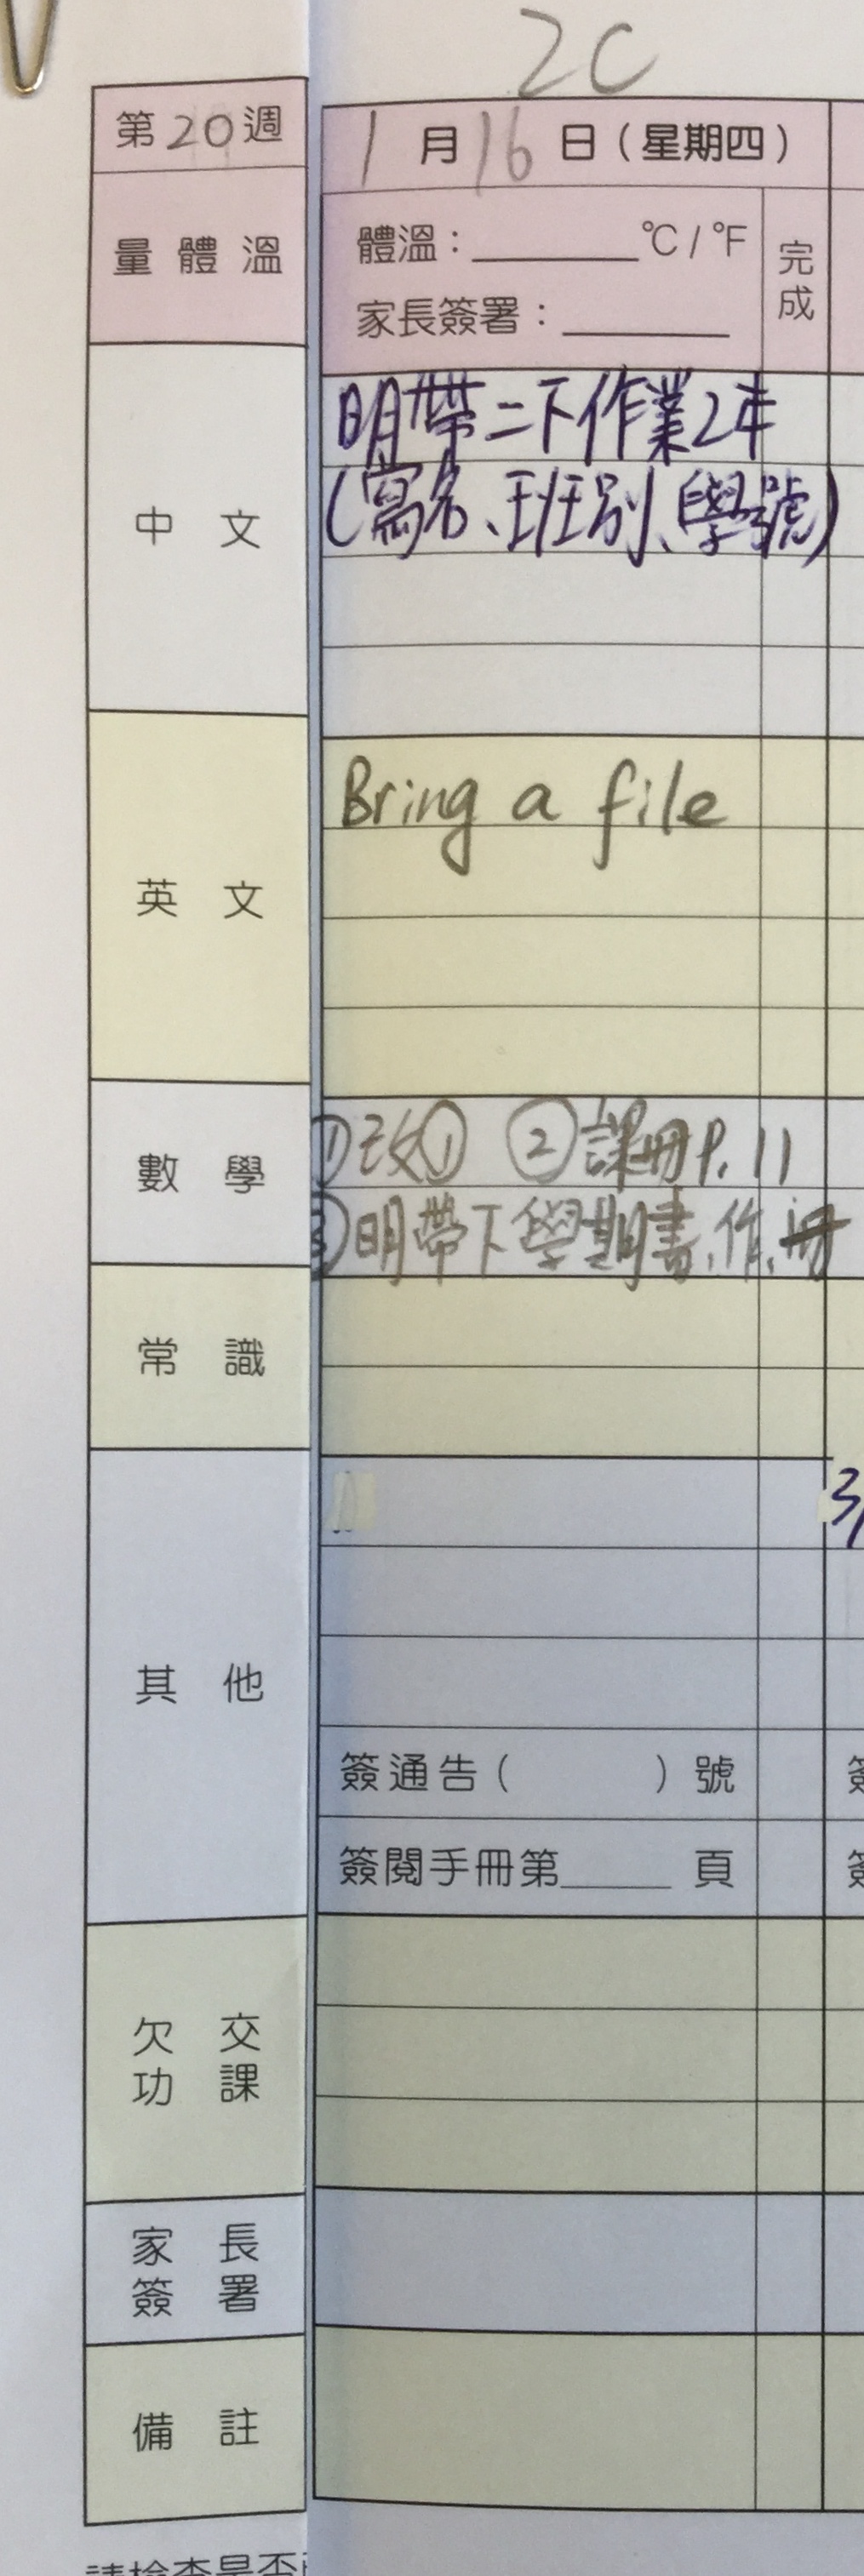 2C
第20週
1月16日(星期四)
量體溫
體溫：______℃/℉
家長簽署：______
完成
中文
明帶二下作業2本
(寫名、班別、學號)
英文
Bring a file
數學
①改① ②課冊P.11
③明帶下學期書、作、冊
常識
其他
3/
簽通告( )號
簽閱手冊第____頁
簽
簽
欠交功課
家長簽署
備註
請檢查是否